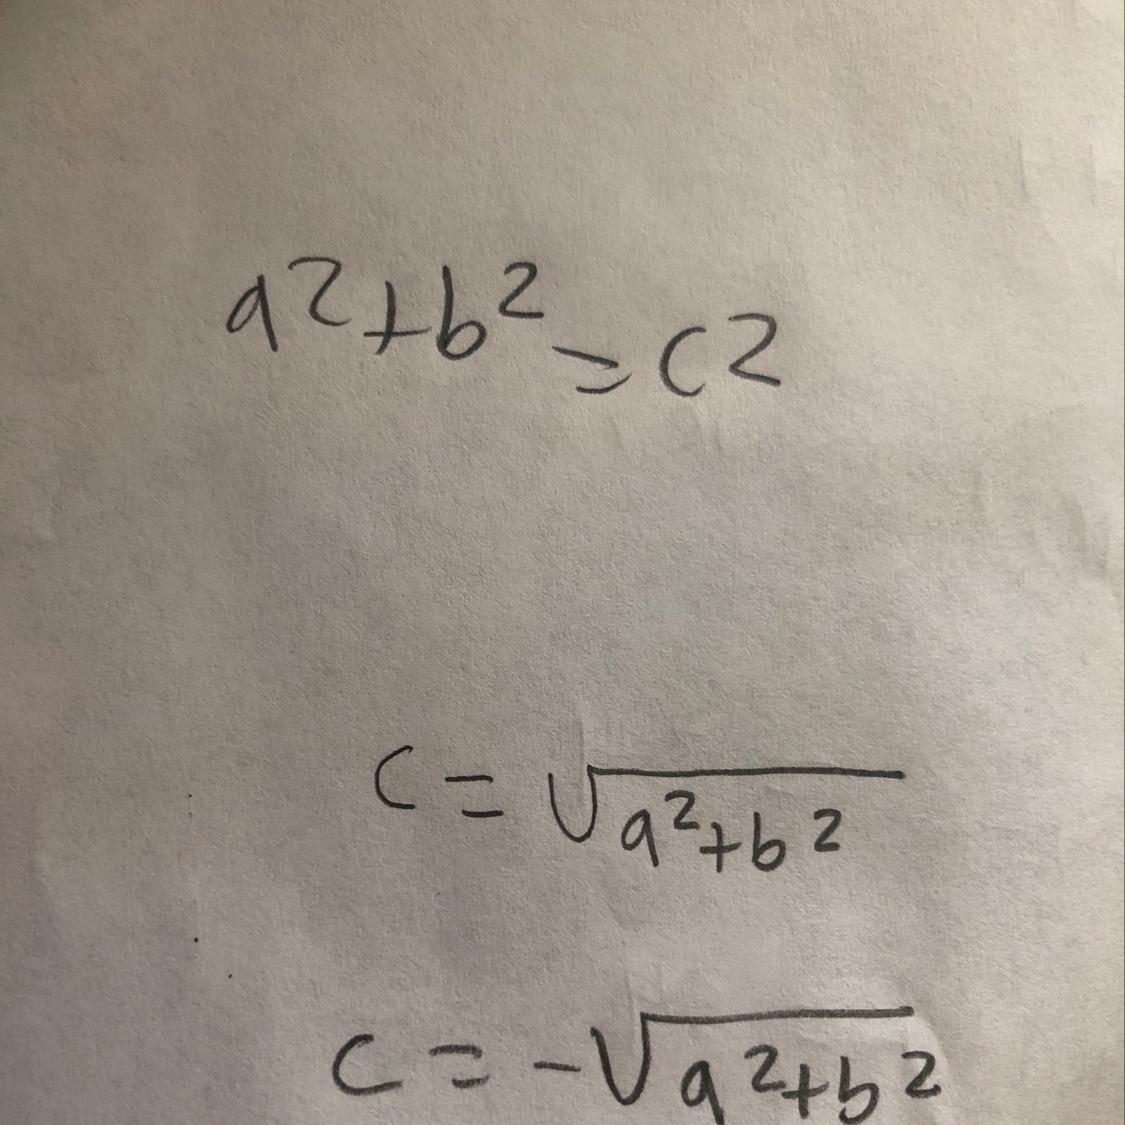 a²+b²=c2
c=√(a²+b²)
c=-√(a²+b²)